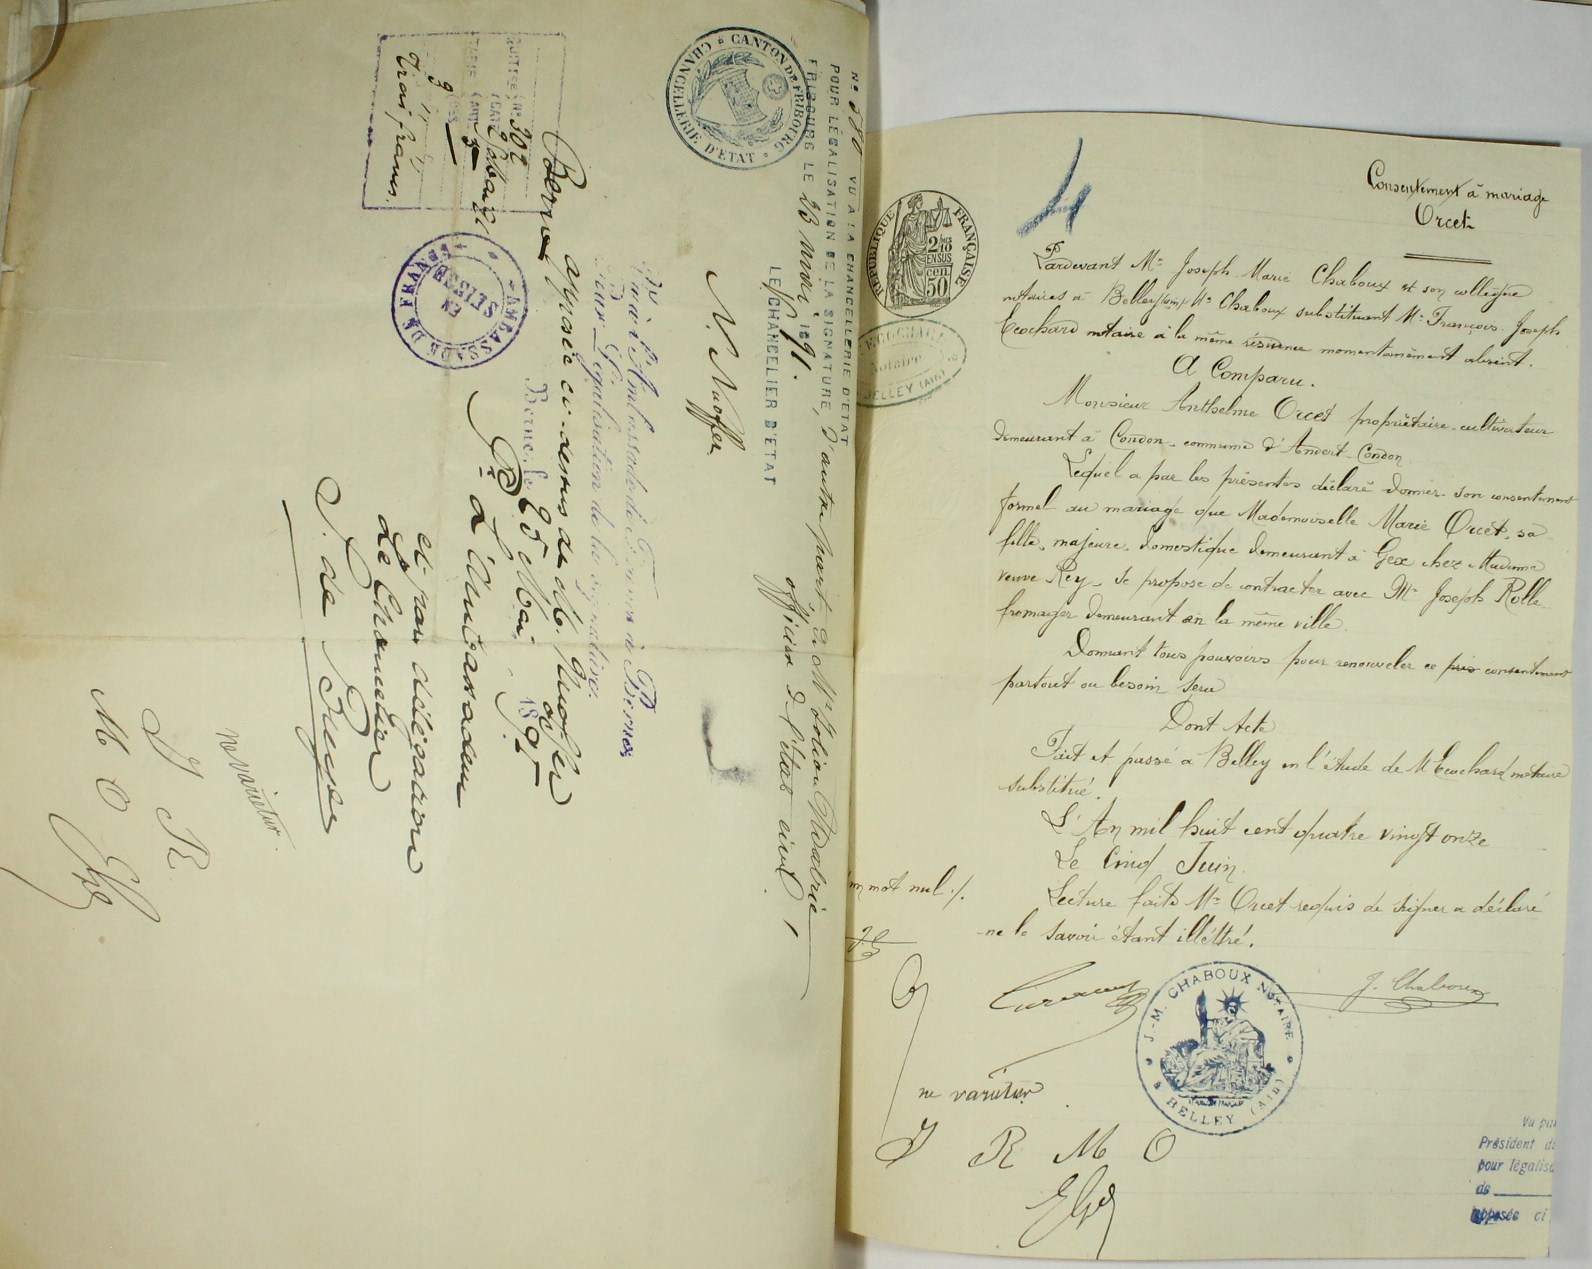 No 380 VU A LA CHANCELLERIE D'ETAT
POUR LÉGALISATION DE LA SIGNATURE, d'autre part, de Mr
officier d'état civil
FRIBOURG LE 23 mai 1891.
LE CHANCELIER D'ETAT
CANTON DE FRIBOURG
CHANCELLERIE D'ETAT
Vu à l'Ambassade de France à Berne
Pour Légalisation de la signature
apposée ci-dessus de M.
Berne, le 25 Mai 1891
Pr L'Ambassadeur
et par délégation
Le Chancelier
AMBASSADE DE FRANCE
EN
SUISSE
302
trois francs.
ne varietur
J R
M O
4
Consentement à mariage
Orcet
RÉPUBLIQUE FRANÇAISE
2/10 EN SUS
50 cen
NOTAIRE
BELLEY (AIN)
Pardevant Me Joseph Marie Chaboux et son collègue
notaires à Belley, Me Chaboux substituant Me François Joseph
Ecochard notaire à la même résidence momentanément absent.
A Comparu.
Monsieur Anthelme Orcet propriétaire-cultivateur
demeurant à Condon, commune d'Andert-Condon
Lequel a par les présentes déclaré donner son consentement
formel au mariage que Mademoiselle Marie Orcet, sa
fille, majeure, domestique demeurant à Gex chez Madame
veuve Rey, se propose de contracter avec Mr Joseph Rolle
fromager demeurant en la même ville.
Donnant tous pouvoirs pour renouveler ce pris consentement
partout où besoin sera
Dont Acte
Fait et passé à Belley en l'étude de Me Ecochard notaire
substitué.
L'An mil huit cent quatre vingt onze
Le Cinq Juin
Lecture faite Mr Orcet requis de signer a déclaré
ne le savoir étant illétré.
un mot nul
J. Chaboux
J.-M. CHABOUX NOTAIRE
BELLEY (AIN)
ne varietur
J R M O
Vu pa
Président d
pour légalis
de
apposée ci